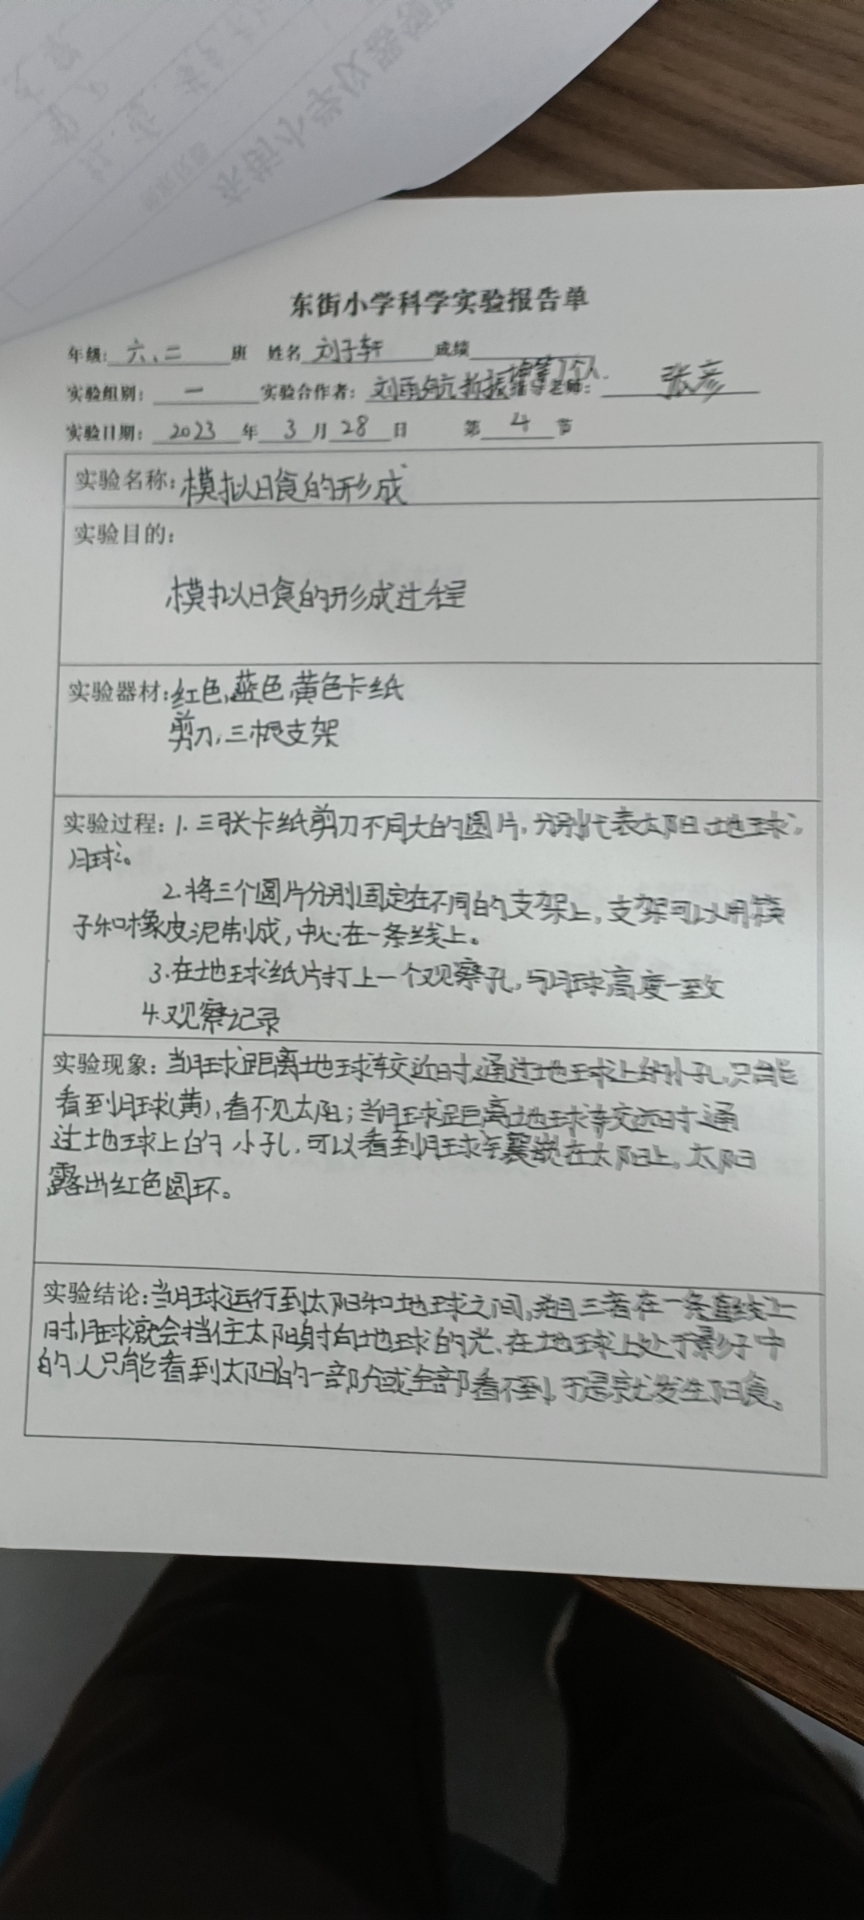 东街小学科学实验报告单
年级: 六、二 班 姓名 刘子轩 成绩
实验组别: 一 实验合作者: 刘雨航 等7个人. 指导老师: 张彦
实验日期: 2023 年 3 月 28 日 第 4 节
实验名称: 模拟日食的形成
实验目的:
模拟日食的形成过程
实验器材: 红色,蓝色,黄色卡纸
剪刀,三根支架
实验过程: 1. 三张卡纸剪刀不同大的圆片,分别代表太阳、地球、
月球。
2. 将三个圆片分别固定在不同的支架上,支架可以用筷
子和橡皮泥制成,中心在一条线上。
3. 在地球纸片打上一个观察孔,与月球高度一致
4. 观察记录
实验现象: 当月球距离地球较近时,通过地球上的小孔,只能
看到月球(黄),看不见太阳;当月球距离地球较远时,通
过地球上的小孔,可以看到月球 嵌在太阳上,太阳
露出红色圆环。
实验结论: 当月球运行到太阳和地球之间, 三者在一条直线上
时,月球就会挡住太阳射向地球的光,在地球上处于影子中
的人只能看到太阳的一部分或全部看不到,于是就发生日食。